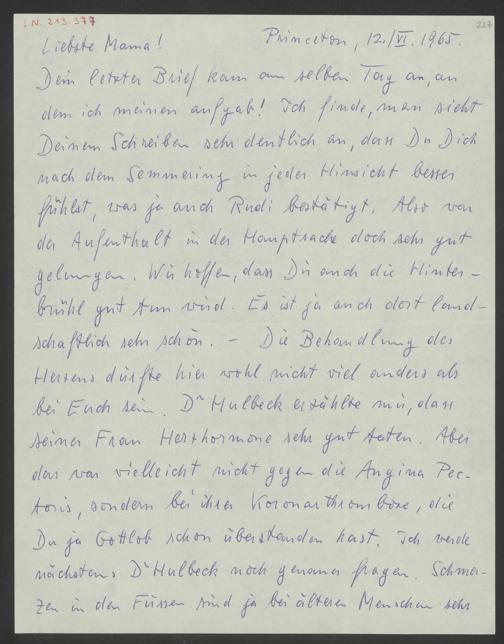 I.N. 213.377
227
Princeton, 12./VI. 1965.
Liebste Mama!
Dein letzter Brief kam am selben Tag an, an
dem ich meinen aufgab! Ich finde, man sieht
Deinem Schreiben sehr deutlich an, dass Du Dich
nach dem Semmering in jeder Hinsicht besser
fühlst, was ja auch Rudi bestätigt. Also war
der Aufenthalt in der Hauptsache doch sehr gut
gelungen. Wir hoffen, dass Dir auch die Hinter-
brühl gut tun wird. Es ist ja auch dort land-
schaftlich sehr schön. – Die Behandlung des
Herzens dürfte hier wohl nicht viel anders als
bei Euch sein. Dr Hulbeck erzählte mir, dass
seiner Frau Herzhormone sehr gut taten. Aber
das war vielleicht nicht gegen die Angina Pec-
toris, sondern bei ihrer Koronarthrombose, die
Du ja Gottlob schon überstanden hast. Ich werde
nächstens Dr Hulbeck noch genauer fragen. Schmer-
zen in den Füssen sind ja bei älteren Menschen sehr